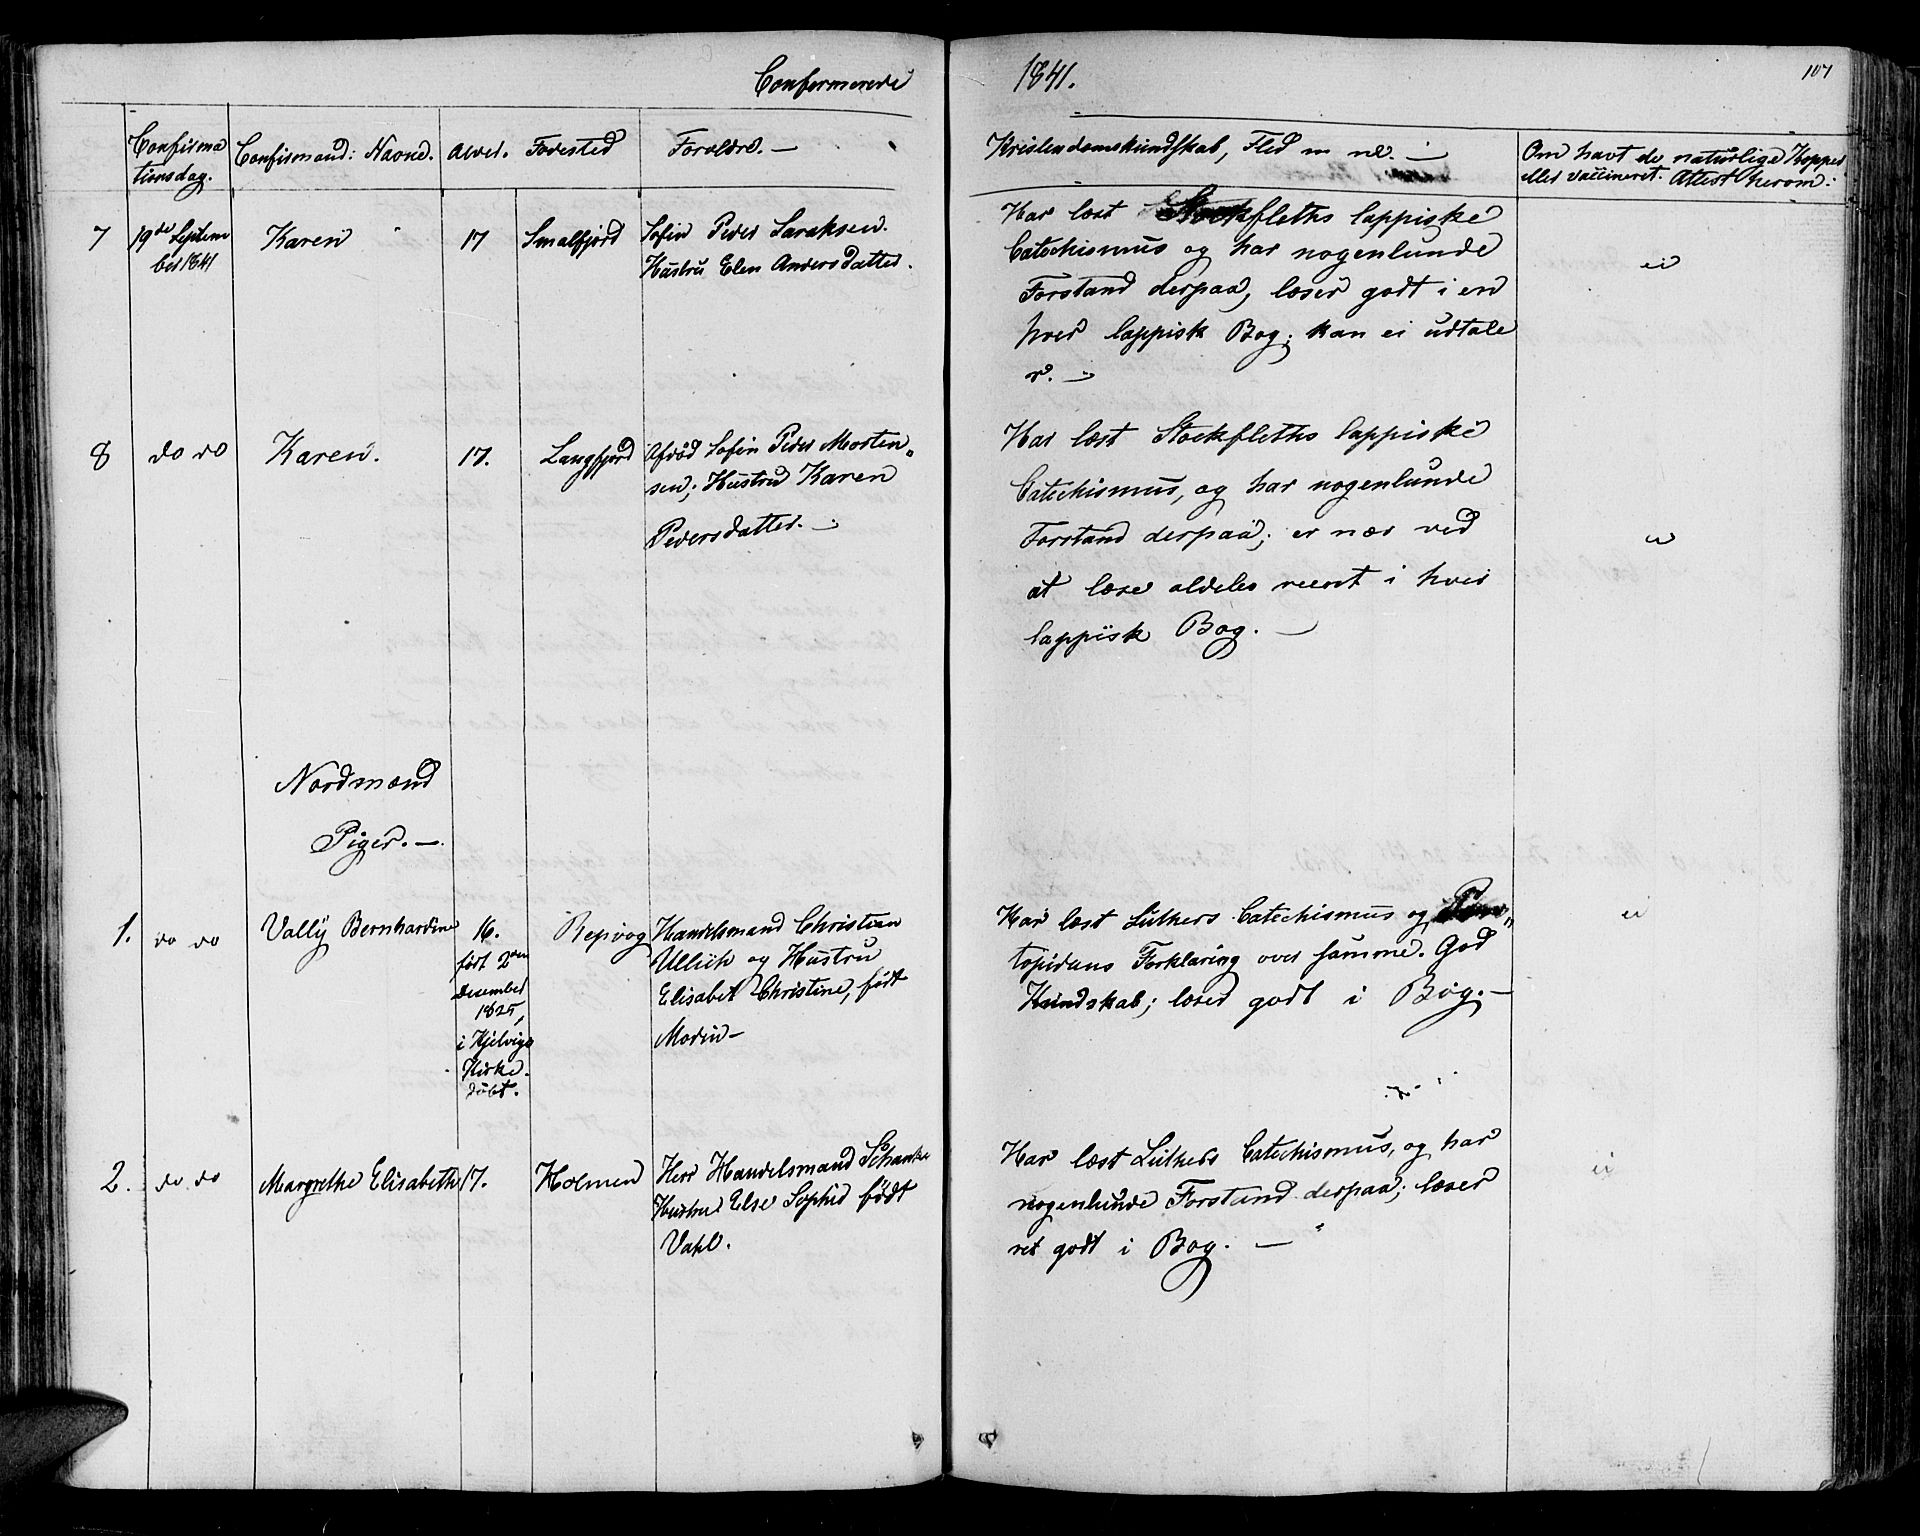 Confermerede
1841.
107
Confirma
tionsdag.
Confirmand: Navne.
Alder.
Fødested
Forældre. —
Kristendomskundskab, Flid m m. —
Om havt de naturlige Kopper
eller vaccineret. Attest herom:
7
19de Septem
ber 1841
Karen
17
Smalfjord
Sofin Peder Saraksen.
Hustru Elen Andersdatter.
Har læst Stockfleths lappiske
Catechismus og har nogenlunde
Forstand derpaa, læser godt i en
hver lappisk Bog; kan ei udtale
r. —
ei
8
do do
Karen.
17.
Langfjord
Afdød Sofin Peder Morten„
sen; Hustru Karen
Pedersdatter. —
Har læst Stockfleths lappiske
Catechismus, og har nogenlunde
Forstand derpaa; er nær ved
at læse aldeles reent i hver
lappisk Bog. —
ei
Nordmænd
Piger. —
1.
do do
Vally Bernhardine
16.
født 2den
Desember
1825,
i Kjelvigs
Kirke
døbt.
Repvog
Handelsmand Christian
Ullich og Hustru
Elisabet Christine, født
Modin —
Har læst Luthers Catechismus og Pon„
topidans Forklaring over samme. God
Kundskab; læser godt i Bog. —
ei
2.
do do
Margrethe Elisabeth
17.
Holmen
Herr Handelsmand Schanke
Hustru Else Sophie født
Vahl.
Har læst Luthers Catechismus, og har
nogenlunde Forstand derpaa; læser
ret godt i Bog. —
ei